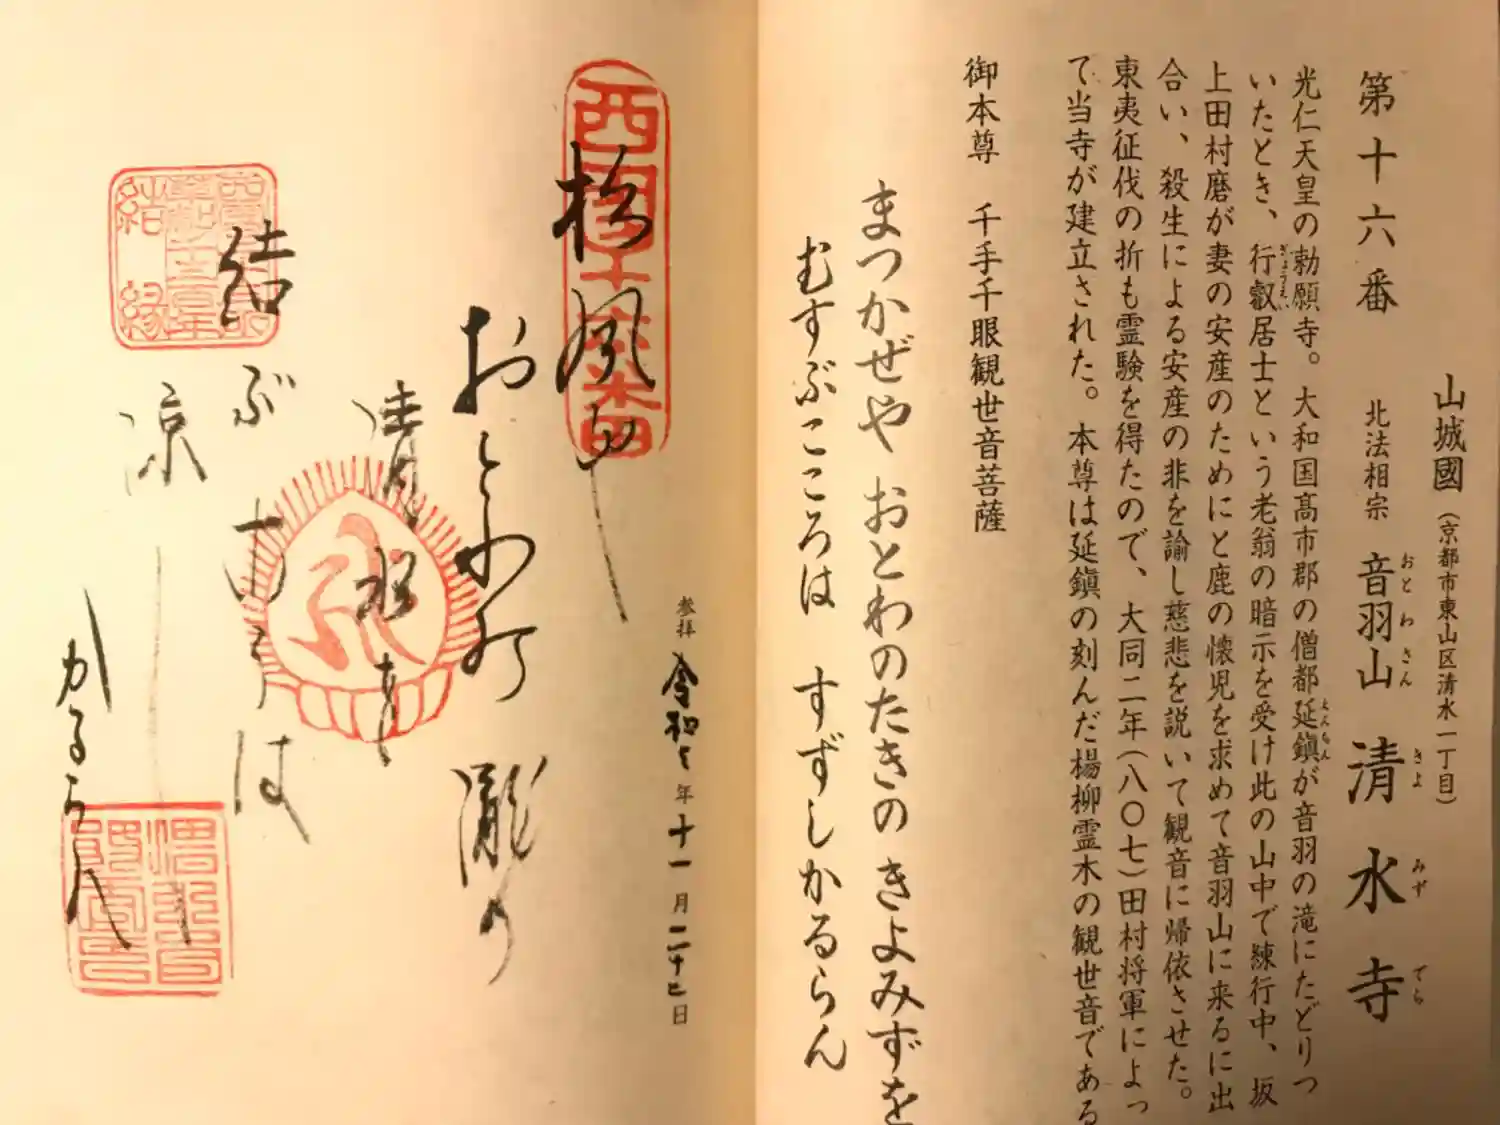 山城國（京都市東山区清水一丁目）
第十六番 北法相宗 音羽山 清水寺
おとわさん きよみずでら
光仁天皇の勅願寺。大和国髙市郡の僧都延鎮が音羽の滝にたどりつ
えんちん
いたとき、行叡居士という老翁の暗示を受け此の山中で練行中、坂
ぎょうえい
上田村磨が妻の安産のためにと鹿の懐児を求めて音羽山に来るに出
合い、殺生による安産の非を諭し慈悲を説いて観音に帰依させた。
東夷征伐の折も霊験を得たので、大同二年（八〇七）田村将軍によっ
て当寺が建立された。本尊は延鎮の刻んだ楊柳霊木の観世音である
御本尊 千手千眼観世音菩薩
まつかぜや おとわのたきの きよみずを
むすぶこころは すずしかるらん
参拝 令和 年十一月二十七日
西国十六番
松風や
おとわ乃 瀧の
清水を
結ぶ はは
凉
かるらん
結縁